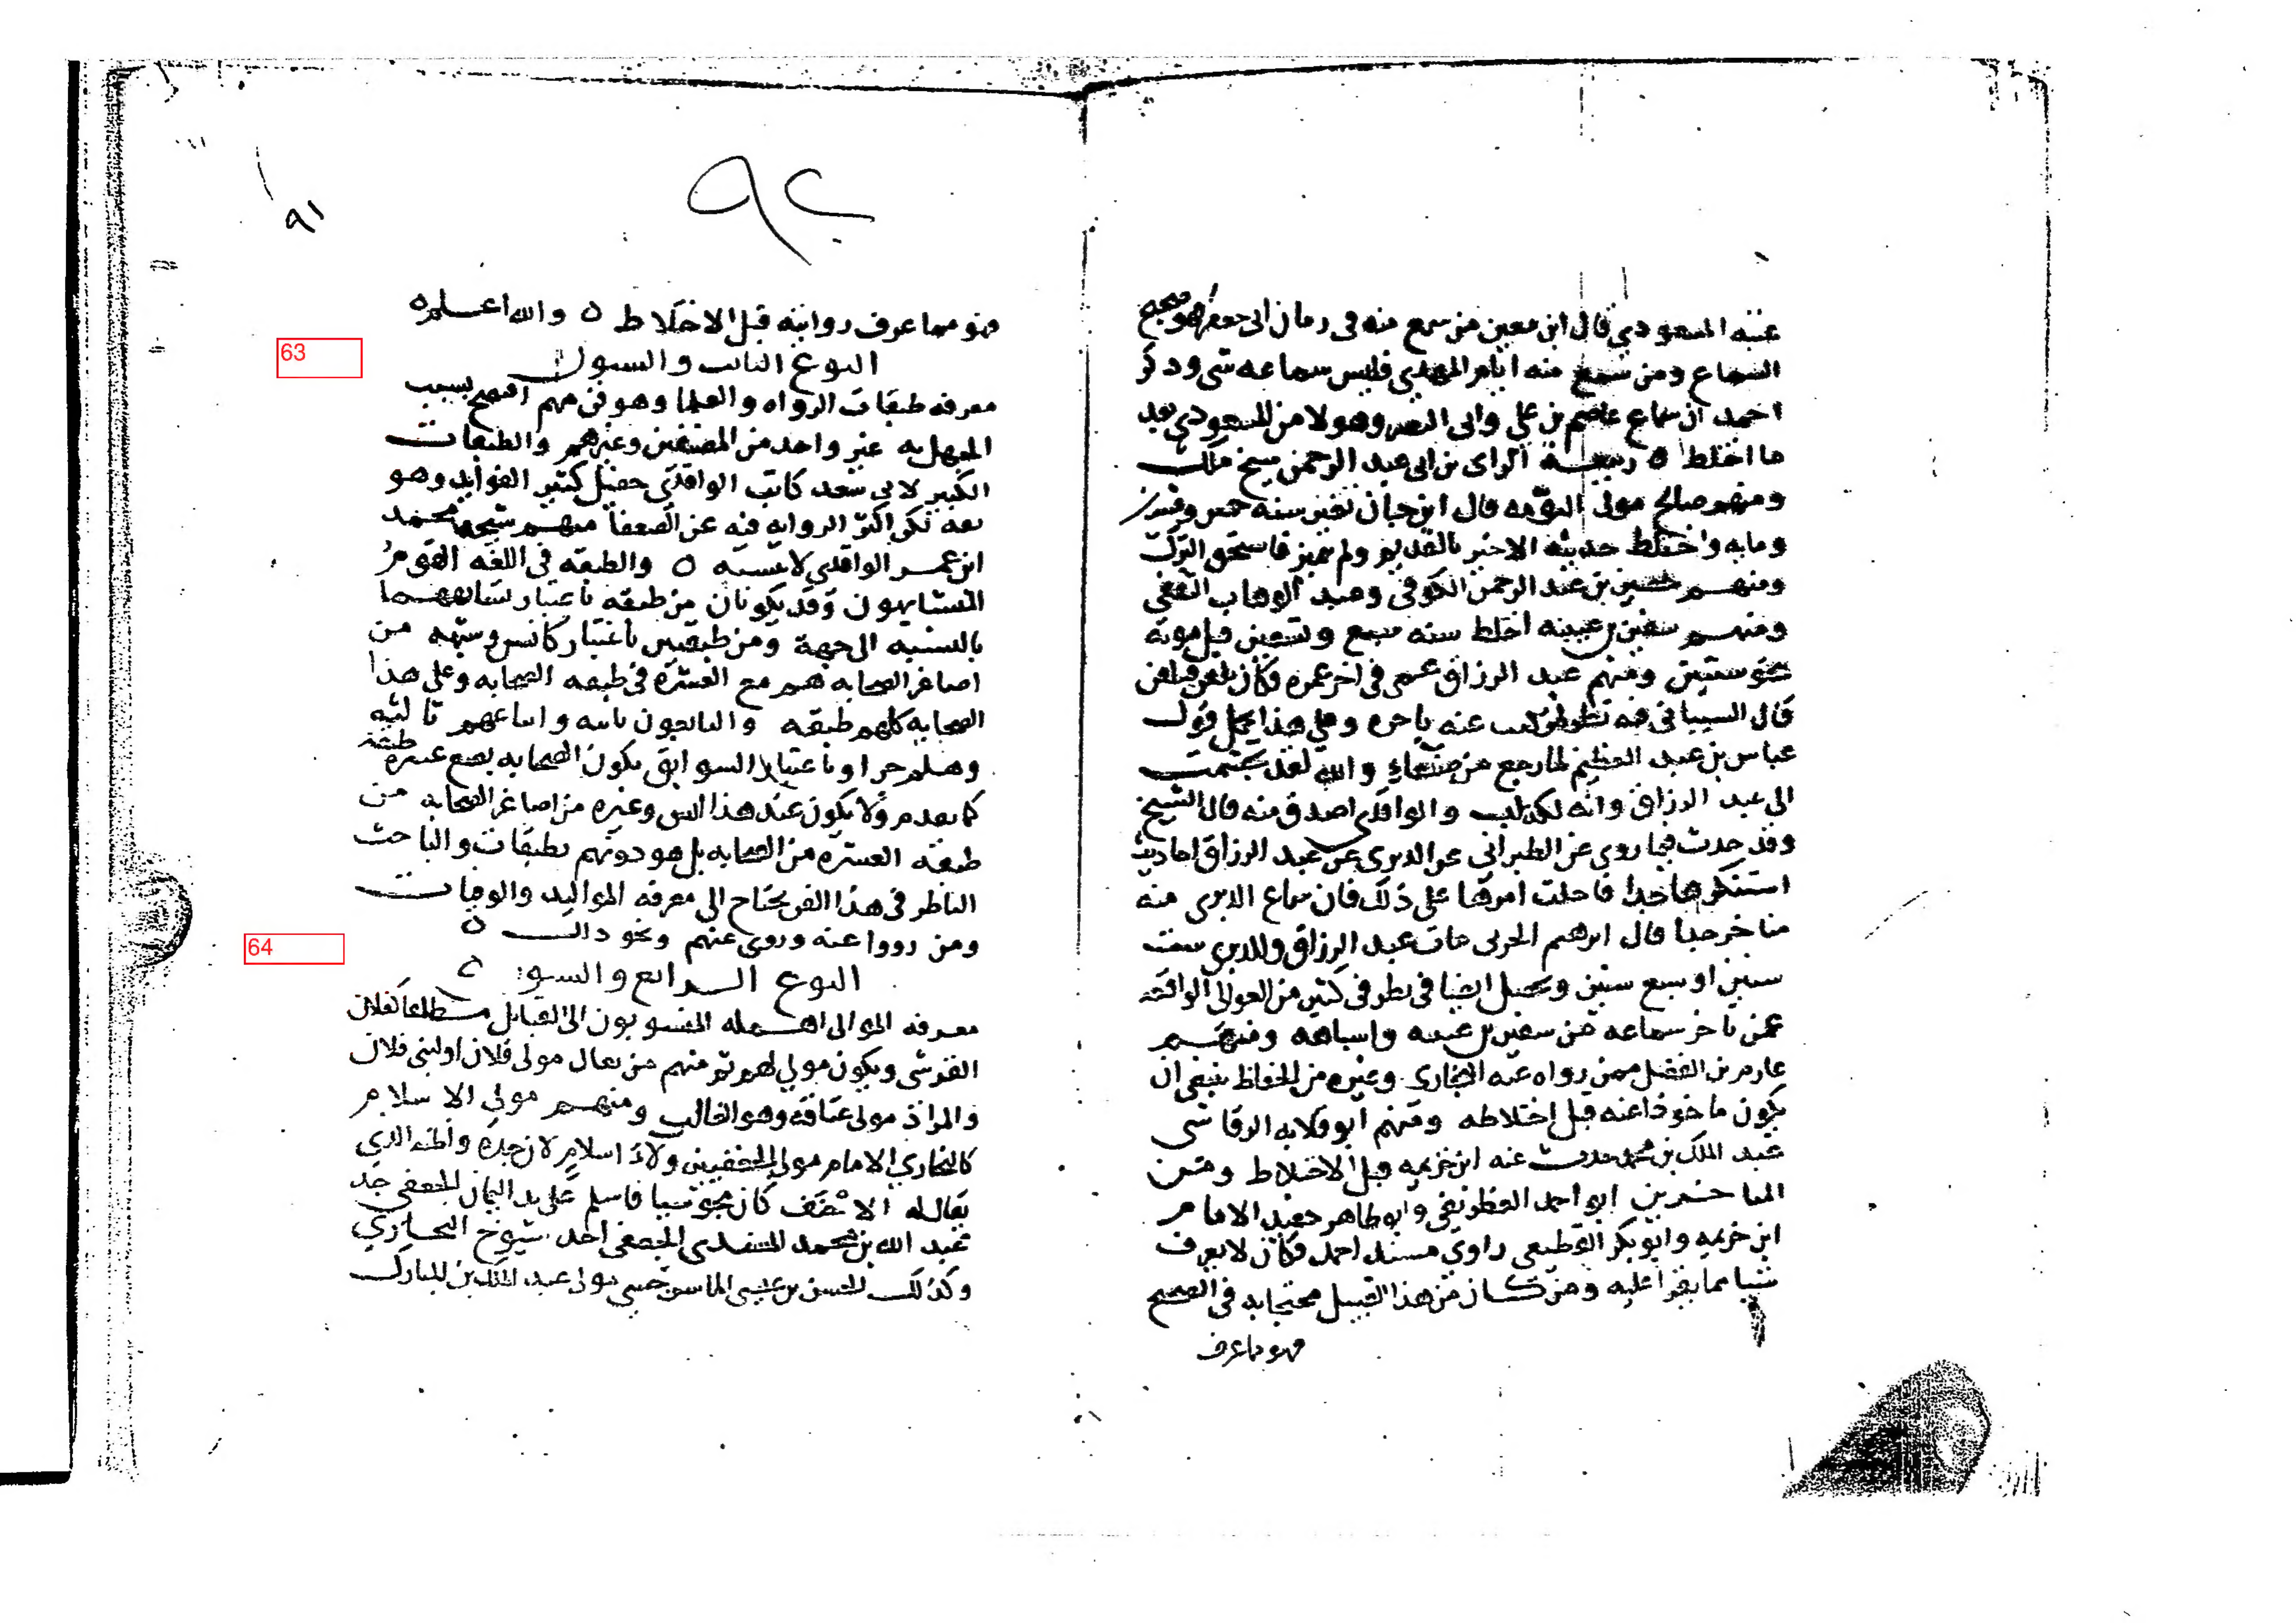 عتبه المسعودي قال ابن معين من سمع منه في زمان ابي جعفر فهو صحيح
السماع ومن سمع منه ايام المهدي فليس سماعه شي وذكر
احمد ان سماع عاصم بن علي وابي النضر وهولا من المسعودي بعد
ما اختلط ٥ ربيعة الراي بن ابي عبد الرحمن شيخ ملك
ومنهم صالح مولى التومه قال ابن حبان تغير سنه خمس وعشرين
ومايه واختلط حديثه الاخير بالقديم ولم يتميز فاستحق الترك
ومنهم حصين بن عبد الرحمن الكوفي وعبد الوهاب الثقفي
ومنهم سفين بن عيينه اختلط سنه سبع وتسعين قبل موته
بنحو سنتين ومنهم عبد الرزاق عمي في اخر عمره فكان يلقن فيتلقن
قال النسياني فيه نظر لمن كتب عنه باخره وعلى هذا يحمل قول
عباس بن عبد العظيم لما رجع من صنعاء والله لقد تجشمت
الى عبد الرزاق وانه لكذاب والواقدي اصدق منه قال الشيخ
وقد وجدت فيما روي عن الطبراني عن الدبري عن عبد الرزاق احاديث
استنكرها جدا فاحلت امرها على ذلك فان سماع الدبري منه
متاخر جدا قال ابرهيم الحربي مات عبد الرزاق وللدبري ست
سنين او سبع سنين ويحصل ايضا في نظر في كثير من العوالي الواقعه
عمن تاخر سماعه من سفين بن عيينه واشباهه ومنهم
عارم بن الفضل فمن رواه عنه البخاري وغيره من الحفاظ ينبغي ان
يكون ماخوذا عنه قبل اختلاطه ومنهم ابو قلابه الرقاشي
عبد الملك بن محمد حدث عنه ابن خزيمه قبل الاختلاط ومن
المتاخرين ابو احمد الغطريفي وابو طاهر حفيد الامام
ابن خزيمه وابو بكر القطيعي راوي مسند احمد فكان لا يعرف
شيا مما يقرا عليه ومن كان من هذا القبيل محتجا به في الصحيح
فهو ما عرف
٩٢
٩١
فهو مما عرف روايته قبل الاختلاط ٥ والله اعلم ٥
63
النوع الثالث والستون
معرفه طبقات الرواه والعلما وهو فن مهم افتضح بسبب
الجهل به غير واحد من المصنفين وغيرهم والطبقات
الكبير لابي سعد كاتب الواقدي حفيل كثير الفوايد وهو
ثقه لكن اكثر الروايه فيه عن الضعفا منهم شيخه محمد
ابن عمر الواقدي لا ينسبه ٥ والطبقه في اللغه القوم
المتشابهون وقد يكونان من طبقه باعتبار تشابههما
بالنسبه الى جهة ومن طبقتين باعتبار كانس وشبهه من
اصاغر الصحابه هم مع العشره في طبقه الصحابه وعلى هذا
الصحابه كلهم طبقه والتابعون ثانيه واتباعهم ثالثه
وهلم جرا وباعتبار السوابق يكون الصحابه بضع عشره طبقه
كما تقدم ولا يكون عند هذا انس وغيره من اصاغر الصحابه من
طبقه العشره من الصحابه بل هو دونهم بطبقات والباحث
الناظر في هذا الفن يحتاج الى معرفه المواليد والوفيات
ومن رووا عنه وروى عنهم ونحو ذلك ٥
64
النوع الرابع والستون ٥
معرفه الموالي اهمله المنسوبون الى القبايل مطلقا كفلان
القرشي ويكون مولى لهم ثم منهم من يقال مولى فلان او لبني فلان
والمراد مولى عتاقه وهو الغالب ومنهم مولى الاسلام
كالبخاري الامام مولى الجعفيين ولاء اسلام لان جده واظنه الذي
يقال له الاحنف كان مجوسيا فاسلم على يد اليمان الجعفي جد
عبد الله بن محمد المسندي الجعفي احد شيوخ البخاري
وكذلك الحسن بن عيسى الماسرجسي مولى عبد الملك بن المبارك